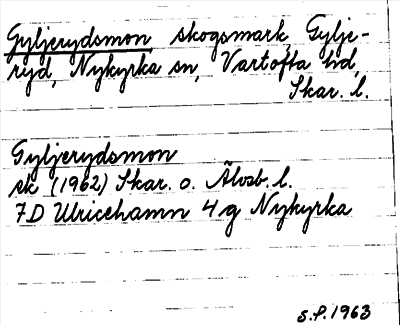 Gyljerydsmon skogsmark, Gylje-
ryd, Nykyrka sn, Vartofta hd,
Skar. l.
Gyljerydsmon
sk (1962) Skar. o. Älvsb. l.
7D Ulricehamn 4g Nykyrka
S.F. 1963